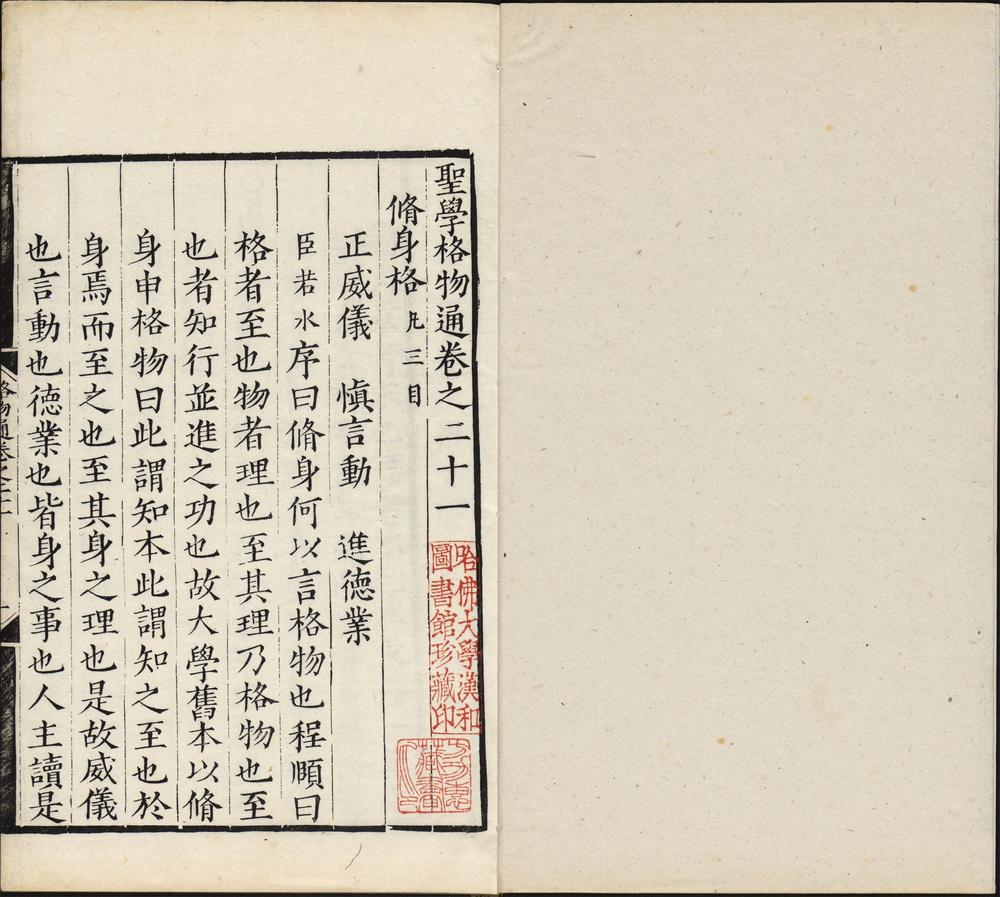 聖學格物通卷之二十一
脩身格 凡三目
正威儀 慎言動 進德業
臣若水序曰脩身何以言格物也程頤曰
格者至也物者理也至其理乃格物也至
也者知行並進之功也故大學舊本以脩
身申格物曰此謂知本此謂知之至也於
身焉而至之也至其身之理也是故威儀
也言動也德業也皆身之事也人主讀是
格物通卷之二十一
哈佛大學漢和
圖書館珍藏印